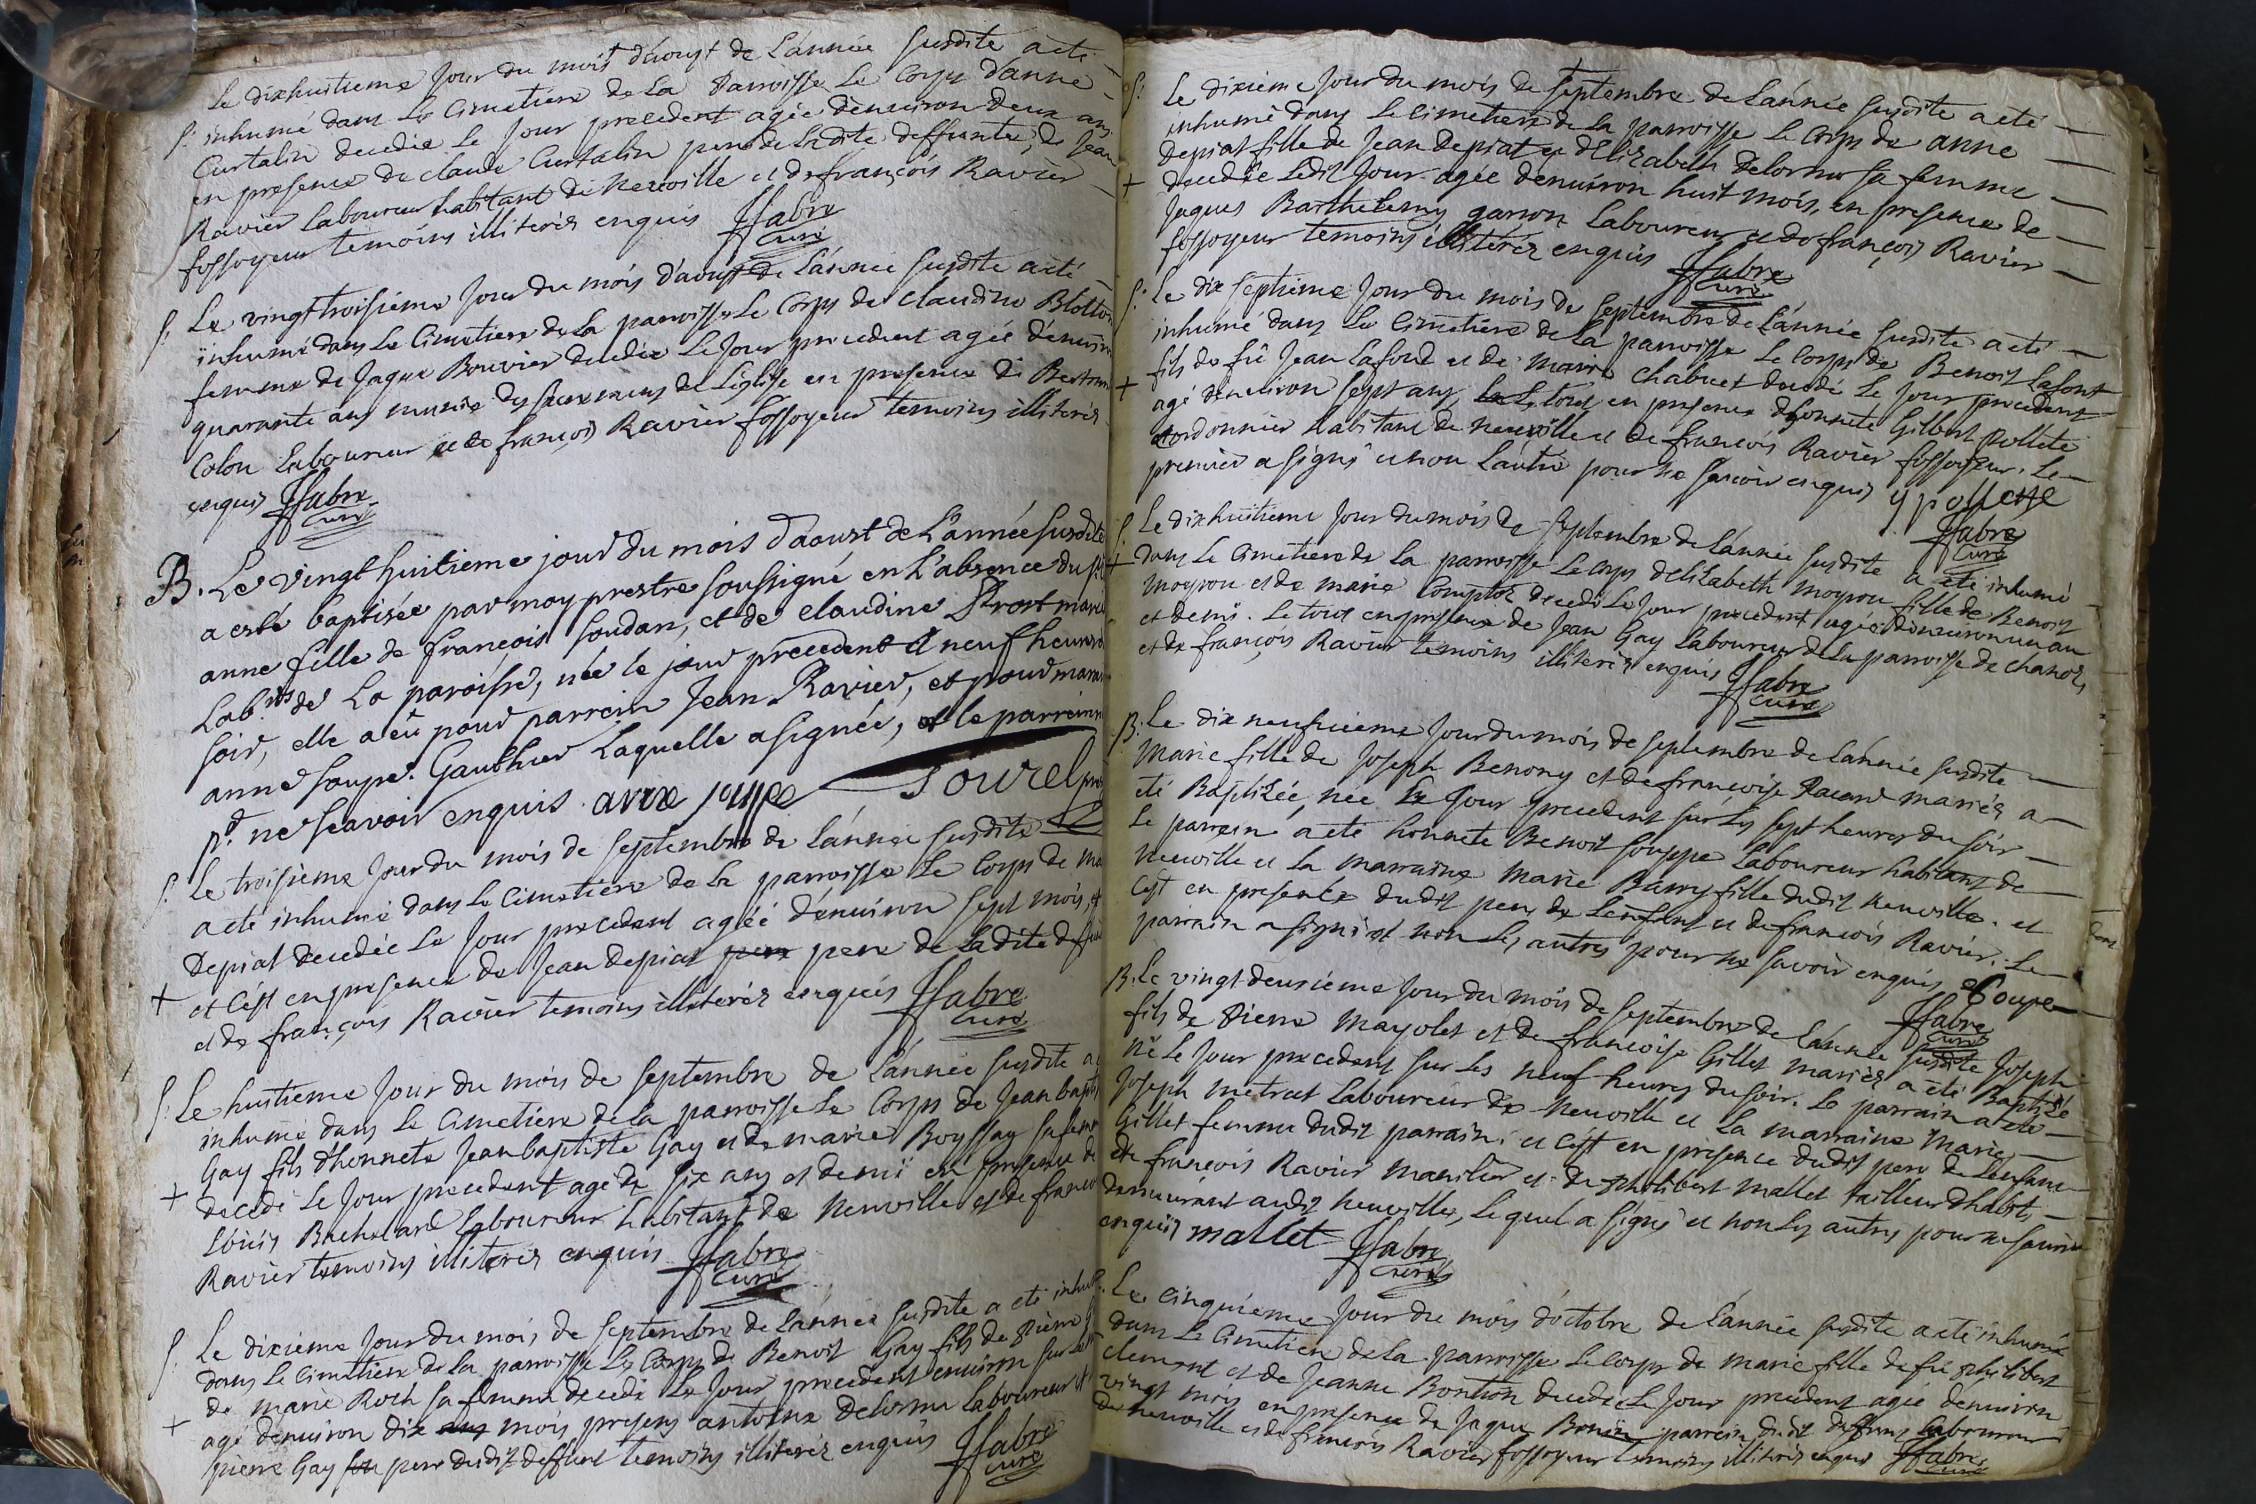 Le dixhuitieme Jour du mois d'aoust de L'année susdite a eté
S. inhumé dans Le Cimetiere de La Parroisse Le Corps d'anne
Curtalin decedée Le Jour precedent agée denuiron deux ans
en presence de claude Curtalin pere de Ladite deffunte, de Jean
Ravier Laboureur habitant de Neuville et de françois Ravier
fossoyeur temoins illiterés enquis JFabre
Curé
S. Le vingt troisieme Jour du mois d'aoust de L'année susdite a eté
inhumé dans Le Cimetiere de La parroisse Le Corps de Claudine Blotton
femme de Jaque Bouvier decedée Le Jour precedent agée d'enuiron
quarante ans munie des sacremens de L'eglise en presence de
Colon Laboureur et de françois Ravier fossoyeur temoins illiterés
enquis JFabre
Curé
B. Le vingt huitieme jour du mois d'aoust de L'année susdite
a esté baptisée par moy prestre soussigné en L'absence du
anne fille de françois soudan, et de claudine Prost mariés
Lab.rs de La paroisse, née le jour precedent a neuf heures
soir, elle a eû pour parrein Jean Ravier, et pour marai
anne soupe. Gauthier Laquelle a signée, et le parrein
p.t ne scavoir enquis. anne soupe
S. Le troisieme Jour du mois de septembre de L'année susdite
a eté inhumé dans Le Cimetiere de La parroisse Le Corps de
Depiat decedée Le Jour precedent agée d'enuiron sept mois, et
+ et c'est en presence de Jean depiat pere pere de Ladite
et de françois Ravier temoins illiterés enquis JFabre
Curé
S. Le huitieme Jour du mois de septembre de L'année susdite a
inhumé dans Le Cimetiere de La parroisse Le Corps de Jean bapti
Gay fils d'honnete Jean baptiste Gay et de marie Boyssay sa fem
+ decedé Le Jour precedent agé de six ans et demi en presence de
Louis Bachelard Laboureur habitant de Neuville et de franco
Ravier temoins illiterés enquis JFabre
Curé
S. Le dixieme Jour du mois de septembre de L'année susdite a eté inhu
dans Le Cimetiere de La parroisse Le Corps de Benoit Gay fils de Pierre
de marie Roch sa femme decedé Le Jour precedent enuiron
+ agé denuiron dix ans mois presens antoine Delorme Laboureur et
pierre Gay pere dudit deffunt temoins illiterés enquis JFabre
curé
S. Le dixieme Jour du mois de septembre de L'année susdite a eté
inhumé dans Le Cimetiere de La parroisse Le Corps de anne
depiat fille de Jean Depiat et d'Elizabeth Delorme sa femme
+ decedée Ledit Jour agée d'enuiron huit mois, en presence de
Jaques Barthelemy garson Laboureur et de françois Ravier
fossoyeur temoins illiterés enquis JFabre
Curé
S. Le dix septieme Jour du mois de septembre de L'année susdite a eté
inhumé dans Le Cimetiere de La parroisse Le Corps de Benoit Lafont
fils de fû Jean Lafond et de marie Chabuet decedé Le Jour precedent
+ agé d'enuiron sept ans, Le tout en presence d'honnete Gilbert pollete
cordonnier habitant de neuville et de françois Ravier fossoyeur. Le
premier a signé et non L'autre pour ne savoir enquis
JFabre
Curé
S. Le dixhuitieme Jour du mois de septembre de L'année susdite a eté inhumé
+ dans Le Cimetiere de La parroisse Le Corps d'Elizabeth moyrou fille de Benoit
moyrou et de marie Comptoz decedé Le Jour precedent agée d'enuiron un an
et demi. Le tout en presence de Jean Gay Laboureur de La parroisse de chanoz,
et de françois Ravier temoins illiterés enquis JFabre
Curé
B. Le dix neufuieme Jour du mois de septembre de L'année susdite
Marie fille de Joseph Benony et de françoise Racard mariés a
eté Baptizée, née Le Jour precedent sur Les sept heures du soir
Le parrein a eté honnete Benoit souppe Laboureur habitant de
Neuville et La marraine Marie Barry fille dudit Neuville. et
C'est en presence dudit pere de Lenfant et de françois Ravier. Le
parrain a signé et non Les autres pour ne savoir enquis Soupe
JFabre
Curé
B. Le vingt-deusieme Jour du mois de septembre de L'année susdite Joseph
fils de Pierre Mayolet et de françoise Gillet mariés a eté Baptisé
né Le Jour precedent sur Les neuf heures du soir. Le parrain a eté
Joseph metrat Laboureur de Neuville et La marraine Marie
Gillet femme dudit parrain; et c'est en presence dudit pere de Lenfant
de françois Ravier manilier et de philibert Mallet tailleur d'habits
demeurant audit Neuville, Lequel a signé et non Les autres pour ne savoir
enquis mallet JFabre
Curé
Le cinquieme Jour du mois d'octobre de L'année susdite a eté inhumé
dans Le Cimetiere de La parroisse Le Corps de marie fille de fû philibert
clement et de Jeanne Bontion decedée Le Jour precedent agée denuiron
vingt mois en presence de Jaque parrein dudit deffunt Laboureur
de neuville et de françois Ravier fossoyeur temoins illiterés enquis JFabre
Curé